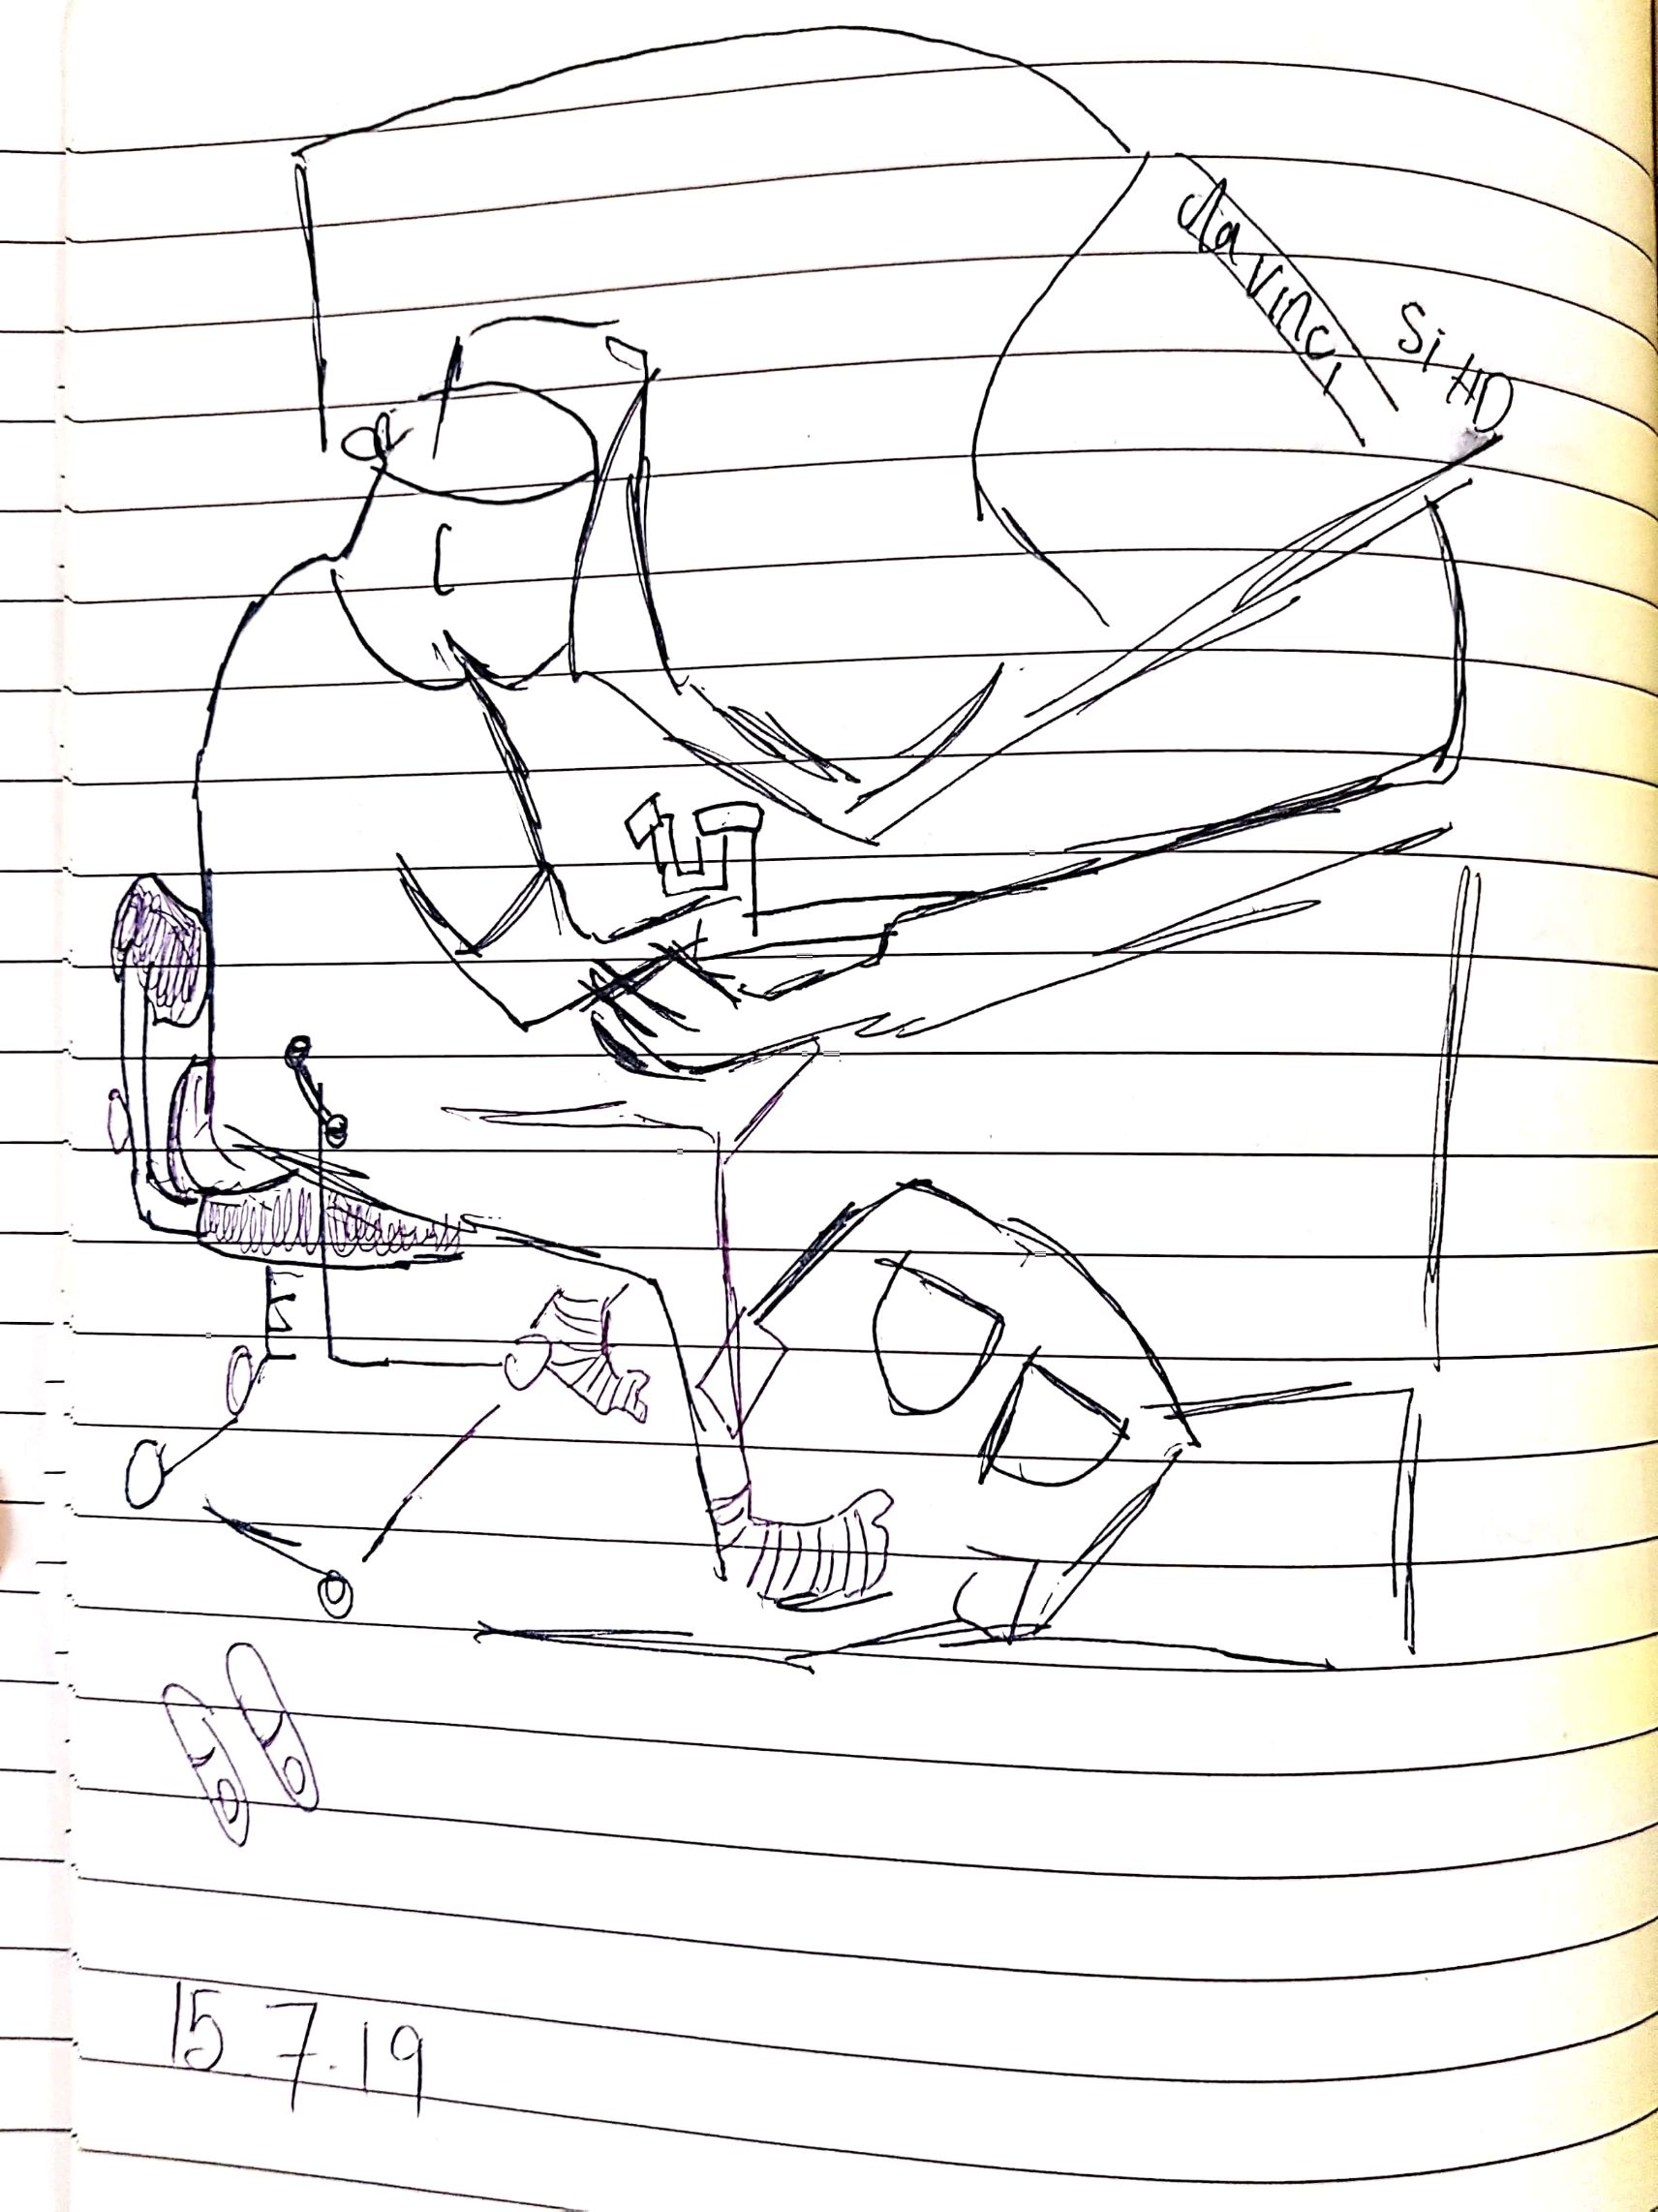 da Vinci
Si HD
15 7.19